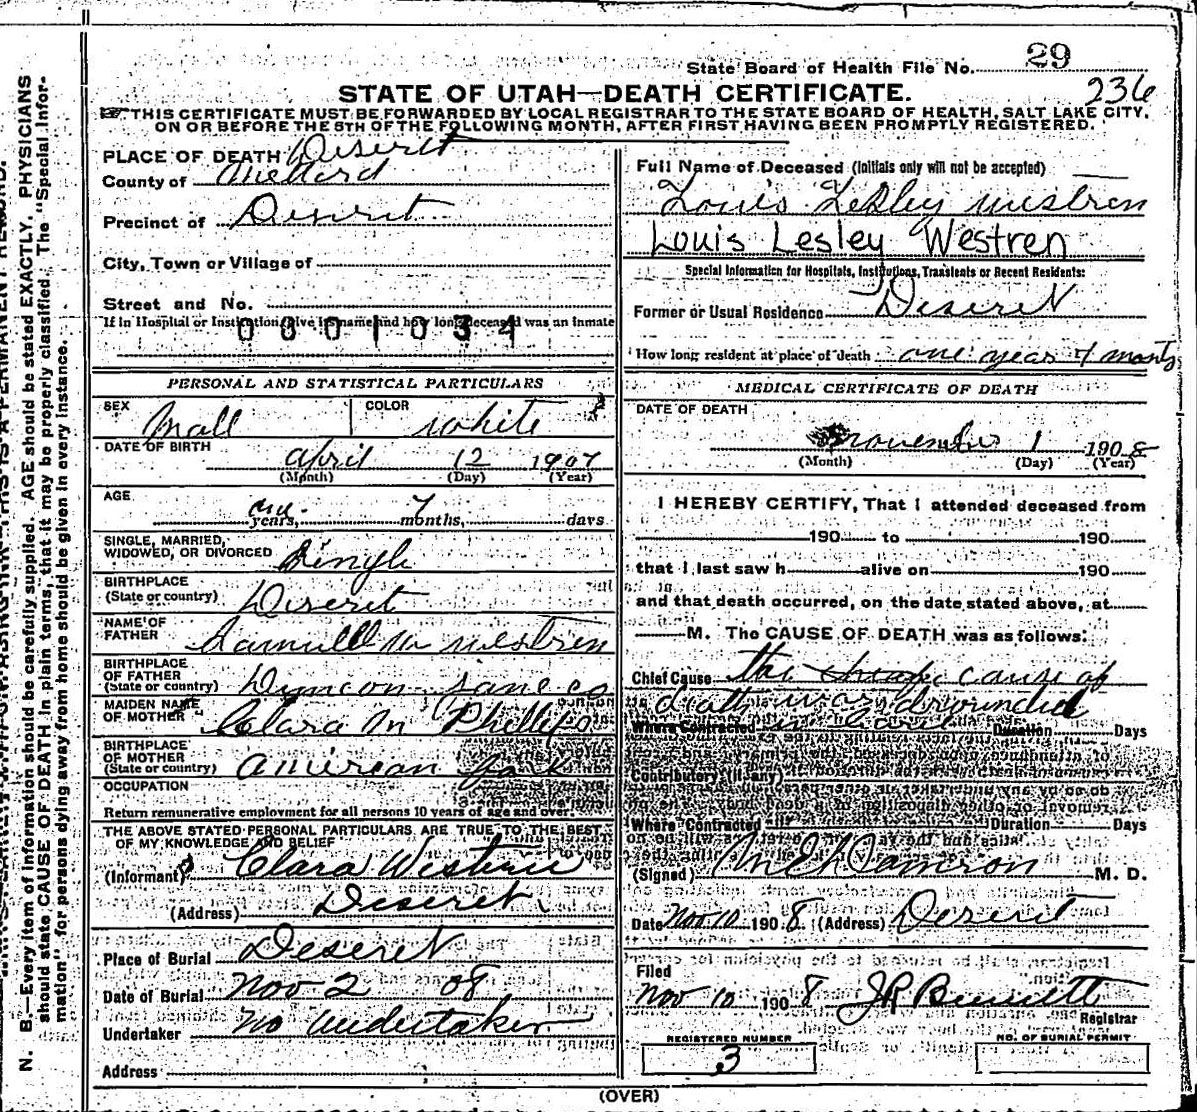 State Board of Health File No. 29
236
STATE OF UTAH—DEATH CERTIFICATE.
THIS CERTIFICATE MUST BE FORWARDED BY LOCAL REGISTRAR TO THE STATE BOARD OF HEALTH, SALT LAKE CITY,
ON OR BEFORE THE 5TH OF THE FOLLOWING MONTH, AFTER FIRST HAVING BEEN PROMPTLY REGISTERED.
PLACE OF DEATH Diseret
County of Millard
Precinct of Diseret
City, Town or Village of
Street and No.
If in Hospital or Institution, give its name and how long deceased was an inmate
0001034
Full Name of Deceased (Initials only will not be accepted)
Louis Lesley Westren
Louis Lesley Westren
Special Information for Hospitals, Institutions, Transients or Recent Residents:
Former or Usual Residence Deseret
How long resident at place of death one year 7 months
PERSONAL AND STATISTICAL PARTICULARS
SEX Mall COLOR white
DATE OF BIRTH April 12 1907
(Month) (Day) (Year)
AGE one years, 7 months, days
SINGLE, MARRIED,
WIDOWED, OR DIVORCED Single
BIRTHPLACE
(State or country) Diseret
NAME OF
FATHER Samuell M Westren
BIRTHPLACE
OF FATHER
(State or country)
MAIDEN NAME
OF MOTHER Clara M Phillips
BIRTHPLACE
OF MOTHER
(State or country) Amirican fork
OCCUPATION
Return remunerative employment for all persons 10 years of age and over.
THE ABOVE STATED PERSONAL PARTICULARS ARE TRUE TO THE BEST
OF MY KNOWLEDGE AND BELIEF
(Informant) Clara Westren
(Address) Deseret
Place of Burial Deseret
Date of Burial Nov 2 08
Undertaker no undertaker
Address
MEDICAL CERTIFICATE OF DEATH
DATE OF DEATH
November 1 1908
(Month) (Day) (Year)
I HEREBY CERTIFY, That I attended deceased from
190 to 190
that I last saw h alive on 190
and that death occurred, on the date stated above, at
M. The CAUSE OF DEATH was as follows:
Chief Cause the cause of
death was drounded
Where Contracted Duration Days
Contributory (if any)
Where Contracted Duration Days
(Signed) M. D.
Date Nov 10 1908 (Address) Deseret
Filed
Nov 10 1908 J R Bennett
Registrar
REGISTERED NUMBER
3
NO. OF BURIAL PERMIT
(OVER)
N. B.—Every item of information should be carefully supplied. AGE should be stated EXACTLY. PHYSICIANS
should state CAUSE OF DEATH in plain terms, that it may be properly classified. The "Special Infor-
mation" for persons dying away from home should be given in every instance.